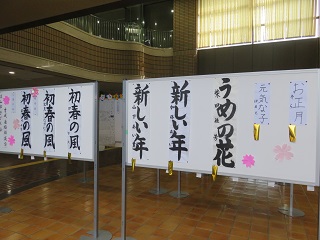 お正月
元気な子
うめの花
新しい年
新しい年
初春の風
初春の風
初春の風